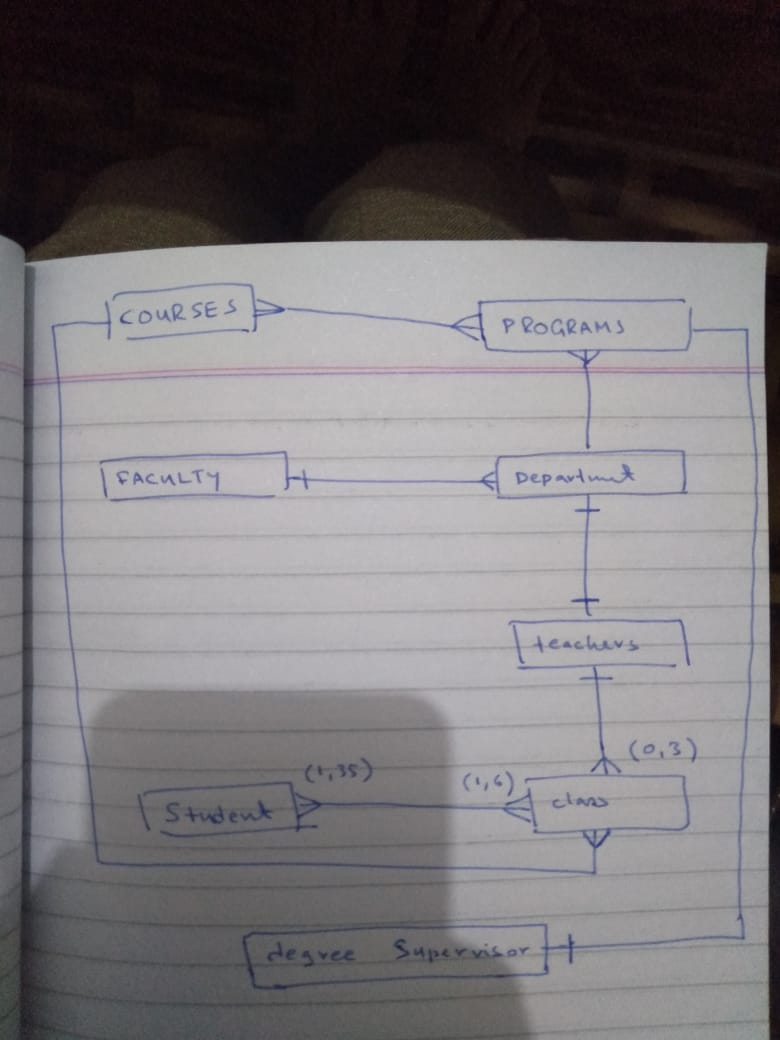 COURSES
PROGRAMS
FACULTY
Department
teachers
(0,3)
(1,35)
(1,6)
Student
class
degree Supervisor